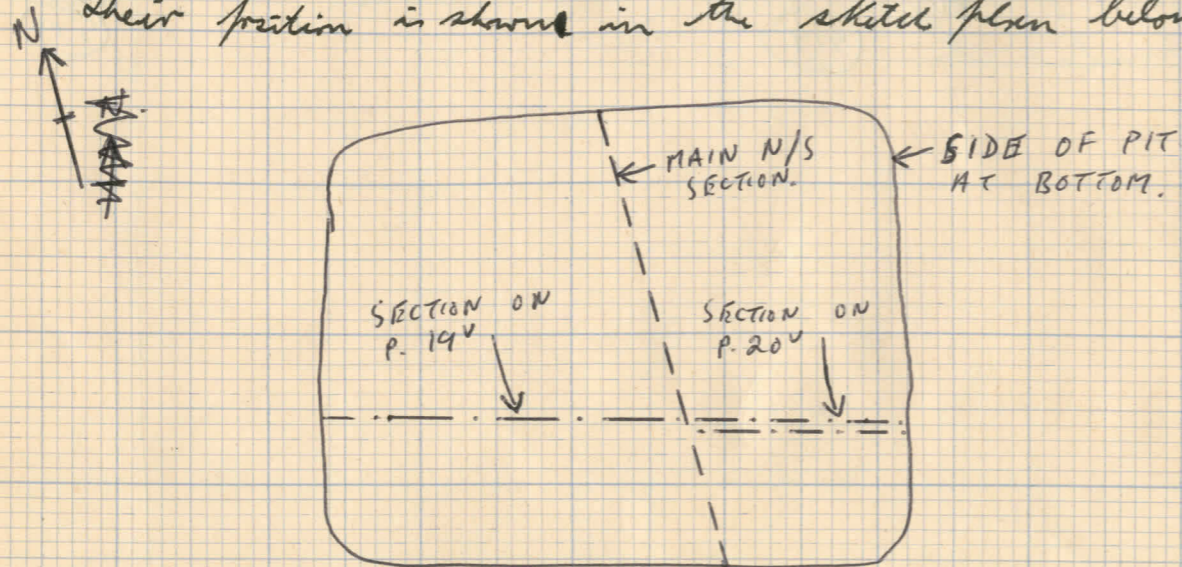 their position is shown in the sketch plan below
N
MAIN N/S
SECTION.
SIDE OF PIT
AT BOTTOM.
SECTION ON
P. 19ᵛ
SECTION ON
P. 20ᵛ